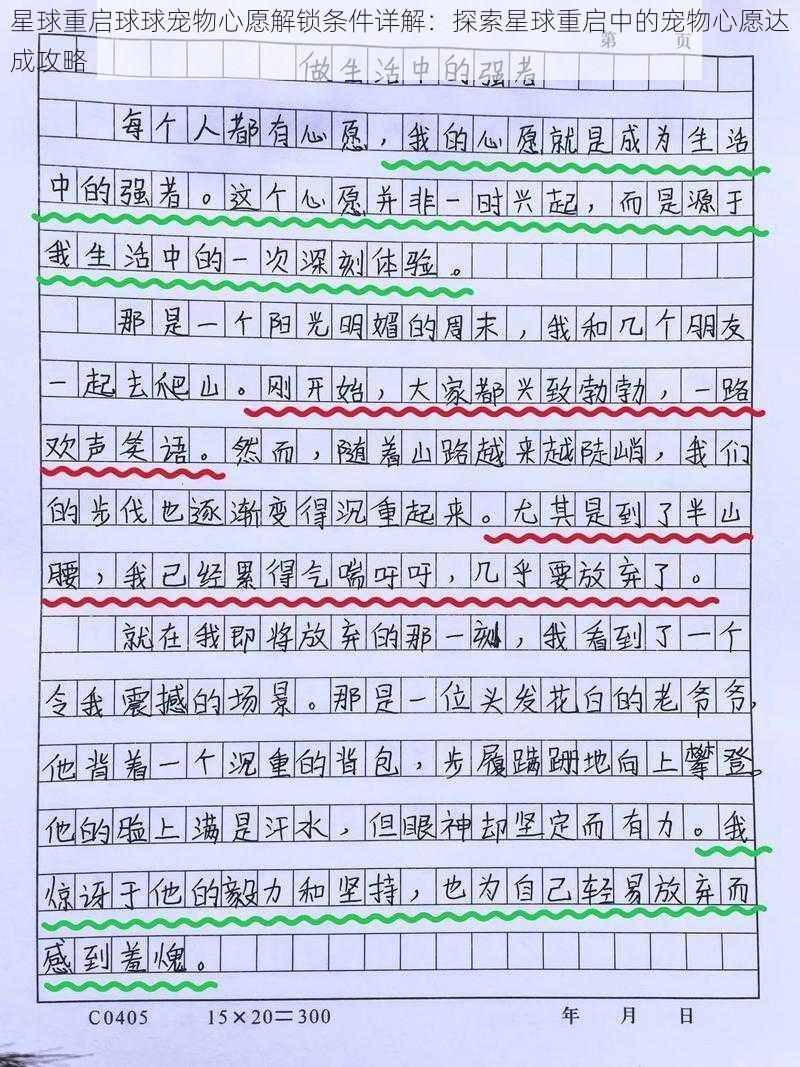 星球重启球球宠物心愿解锁条件详解：探索星球重启中的宠物心愿达
成攻略
第 页
做生活中的强者
每个人都有心愿，我的心愿就是成为生活
中的强者。这个心愿并非一时兴起，而是源于
我生活中的一次深刻体验。
那是一个阳光明媚的周末，我和几个朋友
一起去爬山。刚开始，大家都兴致勃勃，一路
欢声笑语。然而，随着山路越来越陡峭，我们
的步伐也逐渐变得沉重起来。尤其是到了半山
腰，我已经累得气喘吁吁，几乎要放弃了。
就在我即将放弃的那一刻，我看到了一个
令我震撼的场景。那是一位头发花白的老爷爷，
他背着一个沉重的背包，步履蹒跚地向上攀登。
他的脸上满是汗水，但眼神却坚定而有力。我
惊讶于他的毅力和坚持，也为自己轻易放弃而
感到羞愧。
C0405 15×20=300 年 月 日